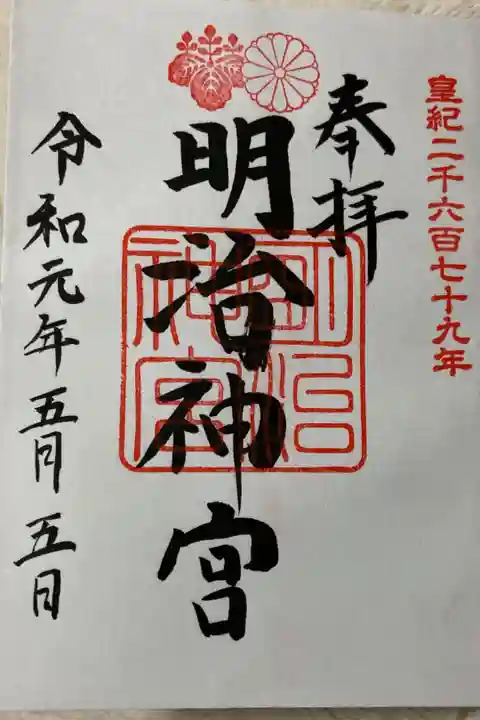 皇紀二千六百七十九年
奉拝
明治神宮
明治神宮
令和元年五月五日